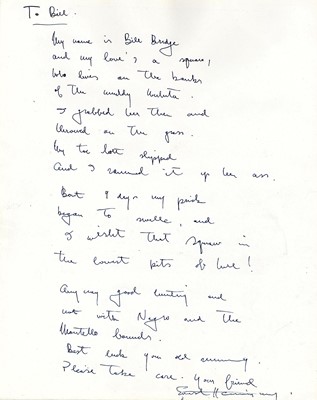 To Bill.
My name is Bill Bridge
and my love's a squaw,
who lives on the banks
of the muddy
I grabbed her then and
throwed on the grass.
My toe hold slipped
and I rammed it up her ass.
Bout 9 days my prick
began to swell, and
I wisht that squaw in
the lowest pits of hell!
Anyway good hunting and
not with Negro and the
Mantello hounds.
Best luck you old
Please take care. Your friend
Ernest Hemingway.